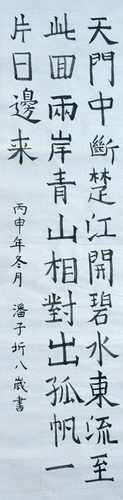 天門中斷楚江開碧水東流至
此回兩岸青山相對出孤帆一
片日邊来
丙申年冬月 潘子折八歲書